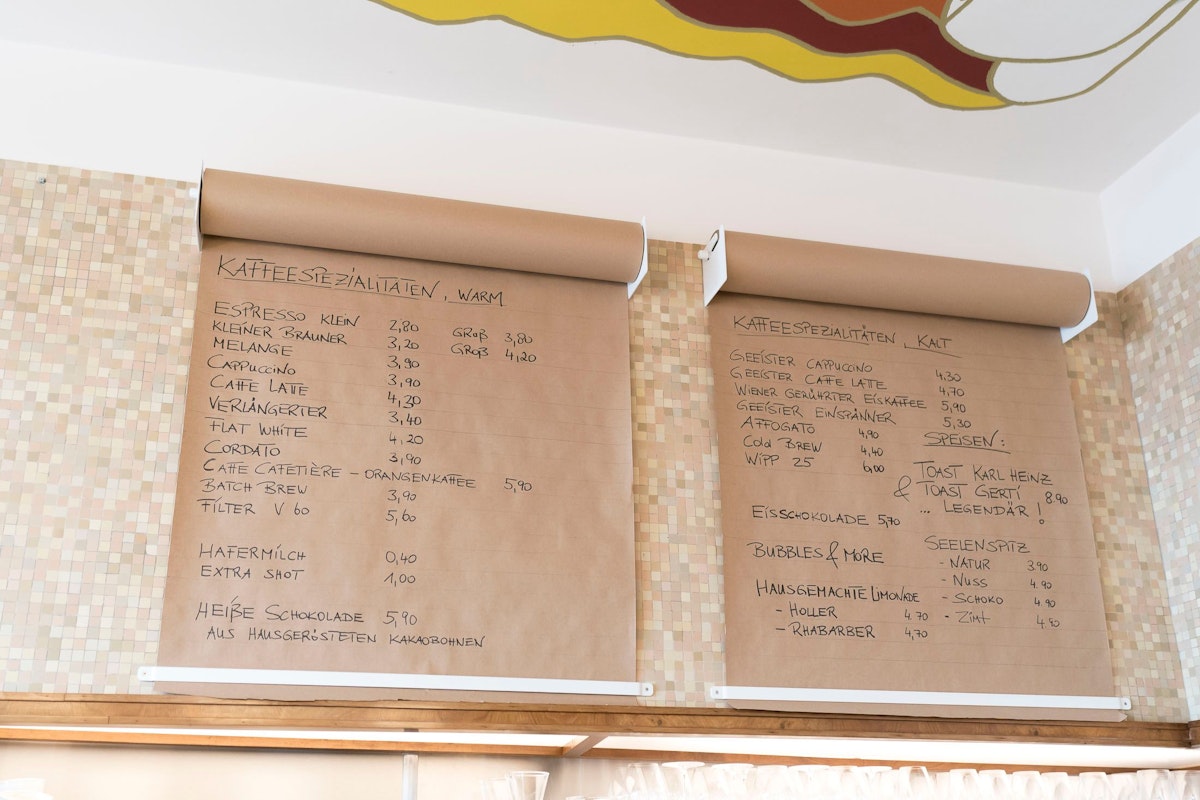 KAFFEESPEZIALITÄTEN, WARM
ESPRESSO KLEIN 2,80 GROß 3,80
KLEINER BRAUNER 3,20 GROß 4,20
MELANGE 3,90
CAPPUCCINO 3,90
CAFFE LATTE 4,30
VERLÄNGERTER 3,40
FLAT WHITE 4,20
CORDATO 3,90
CAFFE CAFETIÈRE – ORANGENKAFFEE 5,90
BATCH BREW 3,90
FILTER V 60 5,60
HAFERMILCH 0,40
EXTRA SHOT 1,00
HEIßE SCHOKOLADE 5,90
AUS HAUSGERÖSTETEN KAKAOBOHNEN
KAFFEESPEZIALITÄTEN, KALT
GEEISTER CAPPUCCINO 4,30
GEEISTER CAFFE LATTE 4,70
WIENER GERÜHRTER EISKAFFEE 5,90
GEEISTER EINSPÄNNER 5,30
AFFOGATO 4,90
COLD BREW 4,40
WIPP 25 6,00
EISSCHOKOLADE 5,70
BUBBLES & MORE
HAUSGEMACHTE LIMONADE
- HOLLER 4.70
- RHABARBER 4,70
SPEISEN:
TOAST KARL HEINZ
& TOAST GERTI 8.90
... LEGENDÄR!
SEELENSPITZ
- NATUR 3.90
- NUSS 4.90
- SCHOKO 4.90
- ZIMT 4.90